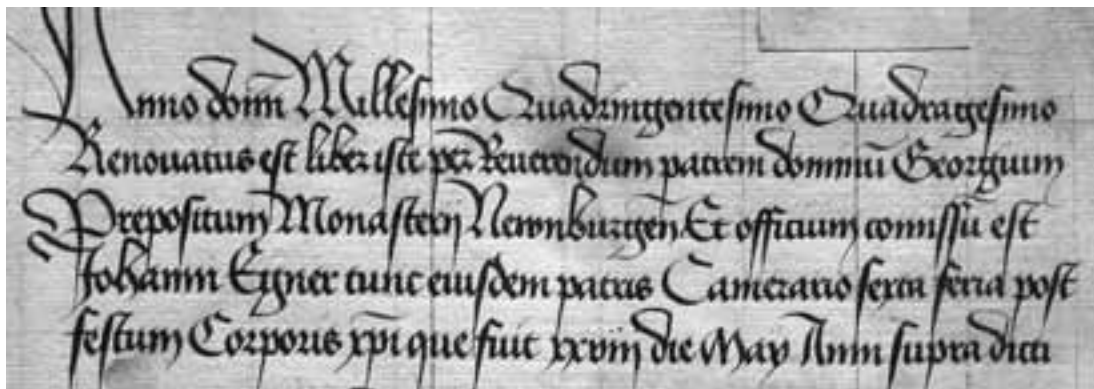 Anno domini Millesimo Quadringentesimo Quadragesimo
Renovatus est liber iste per Reuerendum patrem dominū Georgium
Prepositum Monasterij Newnburgen̄ Et officium comissū est
Johanni Eÿner tunc eiusdem patris Camerario sexta feria post
festum Corporis xpi que fuit xxvij die May Anni supra dicti